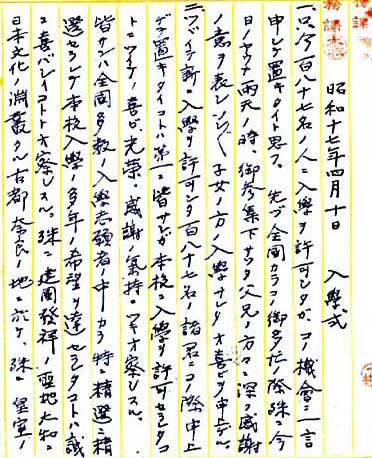 昭和十七年四月十日　入學式
一、只今百八十七名ノ人ニ入學ヲ許可シタガ、コノ機會ニ一言
申シテ置キタイト思フ。先ヅ全國カラコノ御多忙ノ際殊ニ今
日ノヤウナ雨天ノ時、御參集下サッタ父兄ノ方々ニ深ク感謝
ノ意ヲ表シ、子女ノ方ノ入學ナレタオ喜ビヲ申上ゲル。
二、ツヅイテ新ニ入學ヲ許可シタ百八十七名ノ諸君ニコノ際申上
ゲテ置キタイコトハ第一ニ皆サンガ本校ニ入學ヲ許可セラレタコ
トニツイテノ喜ビ、光榮、感謝ノ氣持ニツキオ察シスル。
皆サンハ全國多數ノ入學志願者ノ中カラ特ニ精選ニ精
選セラレテ本校入學ノ多年ノ希望ヲ達セラレタコトハ誠
ニ喜バシイコトト察シスル。殊ニ建國發祥ノ聖地大和ニ
日本文化ノ淵叢タル古都奈良ノ地ニ於テ、殊ニ皇室ノ